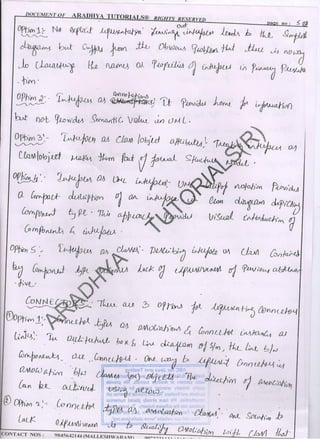 DOCUMENT OF ARADHYA TUTORIALS® RIGHTS RESERVED
PAGE NO:
Option 1:- No explicit representation leaving out interfaces leads to the simplest
diagrams but suffers from the obvious problem that there is no way
to characterize the names or Properties of interfaces in Primary Presenta
-tion.
Option 2:- Interfaces as annotations: It Provides home for information
but not Provides Semantic Value in UML.
Option 3:- Interfaces as Class/object attributes: Treating interfaces as
Class/object makes them Part of formal Structure model.
Option 4:- Interfaces as UML interfaces: UML notation Provides
a Compact description of an interface in Class diagram depicting
Component type. This approach Provides Visual
Components & interfaces.
Option 5:- Interfaces as classes:- Describing interfaces as class Contained
by Component type lack of expressiveness of Previous alterna
-tive.
CONNECTORS:- There are 3 options for representing Connectors
① Option 1:- Connector types as associations & Connector instances as
links:- In architecture box & line diagram of S/m, the line b/w
Components are Connectors. One way to represent Connectors is
association b/w classes (or) objects. The direction of association
Can be using arrow.
② Option 2:- Connector types as association classes: one Solution to
Lack expressiveness is to Qualify association with Class that
ARADHYA TUTORIALS(R)
CONTACT NOS : 9845642144 (MALLESHWARAM)